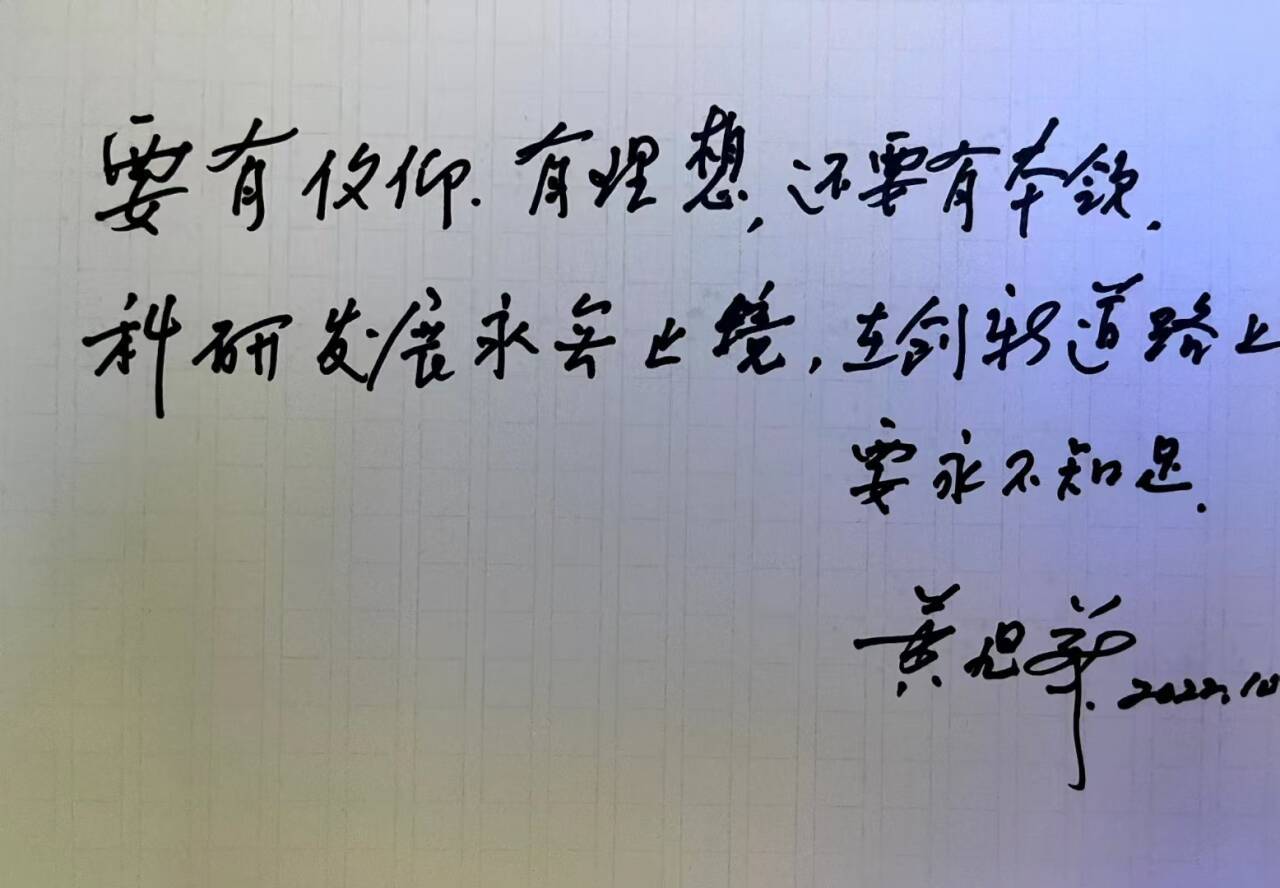 要有信仰.有理想,还要有本领.
科研发展永无止境,在创新道路上
要永不知足.
黄旭华.2022.10